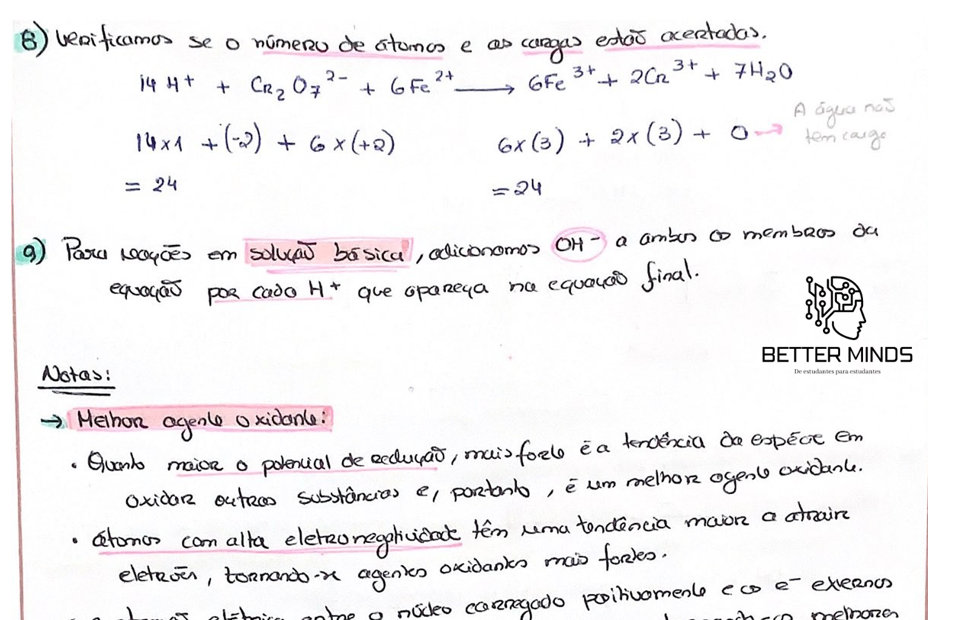 8) Verificamos se o número de átomos e as cargas estão acertadas.
14 H⁺ + Cr₂O₇²⁻ + 6Fe²⁺ ⟶ 6Fe³⁺ + 2Cr³⁺ + 7H₂O
14x1 + (-2) + 6 x (+2) 6x(3) + 2x(3) + 0 → A água não
tem carga
= 24 = 24
9) Para reações em solução básica, adicionamos OH⁻ a ambos os membros da
equação por cada H⁺ que apareça na equação final.
BETTER MINDS
De estudantes para estudantes
Notas:
→ Melhor agente oxidante:
• Quanto maior o potencial de redução, mais forte é a tendência da espécie em
oxidar outras substâncias e, portanto, é um melhor agente oxidante.
• átomos com alta eletronegatividade têm uma tendência maior a atrair
eletrões, tornando-se agentes oxidantes mais fortes.
entre o núcleo carregado positivamente e os e⁻ externos
melhores